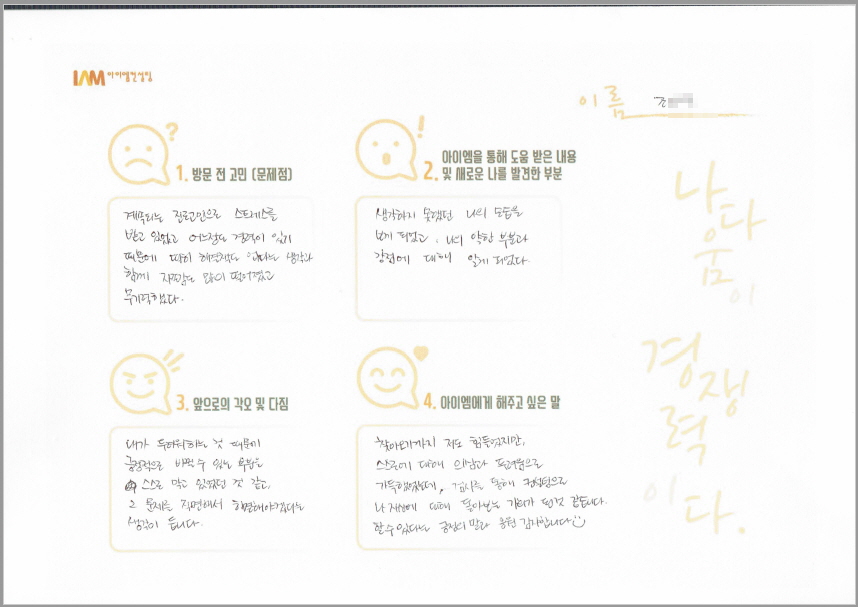 IAM 아이엠컨설팅
이름 조
1. 방문 전 고민 (문제점)
계속되는 진로고민으로 스트레스를
받고 있었고 어느정도 경력이 있기
때문에 딱히 해결책도 없다는 생각과
함께 자존감도 많이 떨어졌고
무기력했다.
아이엠을 통해 도움 받은 내용
2. 및 새로운 나를 발견한 부분
생각하지 못했던 나의 모습을
보게 되었고, 나의 약한 부분과
강점에 대해 알게 되었다.
3. 앞으로의 각오 및 다짐
내가 두려워하는 것 때문에
긍정적으로 바뀔 수 있는 부분을
스스로 막고 있었던 것 같고,
그 문제를 직면해서 해결해야겠다는
생각이 듭니다.
4. 아이엠에게 해주고 싶은 말
찾아오기까지 저도 힘들었지만,
스스로에 대해 의심과 두려움으로
가득했었는데, 검사를 통해 컨설팅으로
나 자신에 대해 돌아보는 기회가 된것 같습니다.
할 수 있다는 긍정의 말과 응원 감사합니다
나다움이
경쟁력이다.